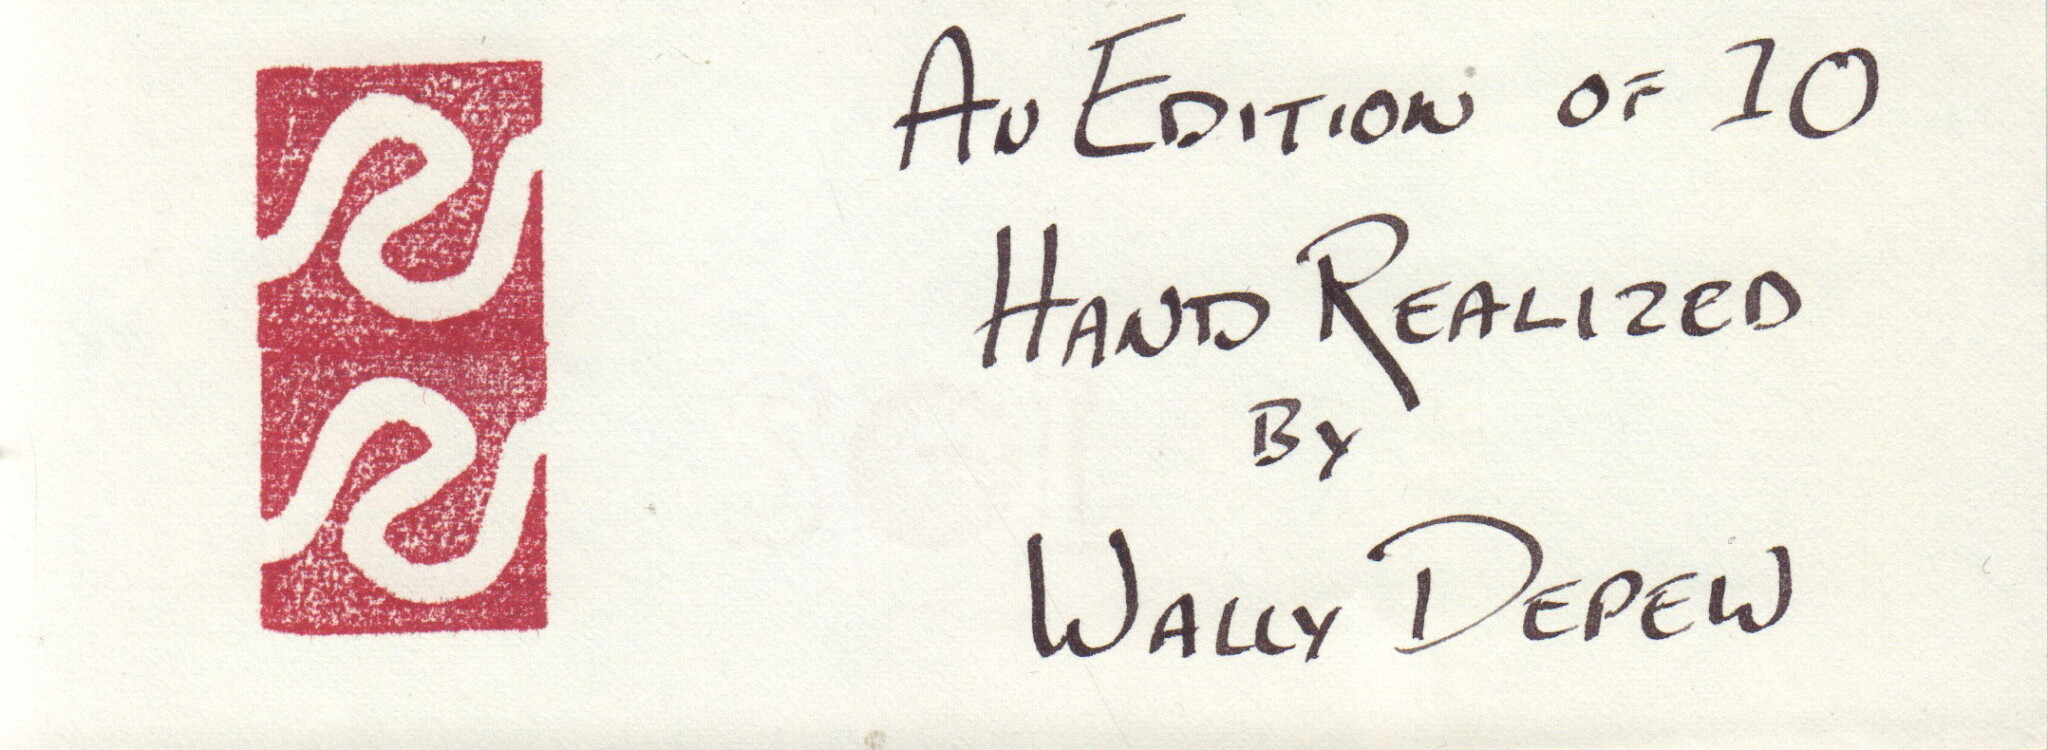 An Edition of 10
Hand Realized
By
Wally Depew